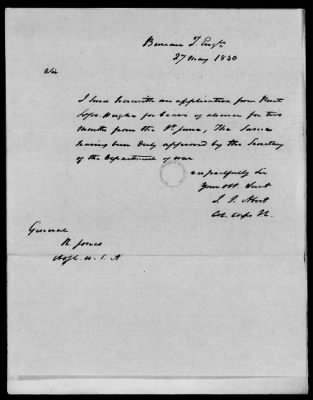 Bureau T. Eng.
27 May 1830
Sir
I send herewith an application from
Hughes for leave of absence for two
Months from the 1st June, The Same
having been duly approved by the Secretary
of the Department of war
respectfully Sir
Your obt Svt
J. J. Abert
Col. Corps
General
R. Jones
Adjt. U. S. A